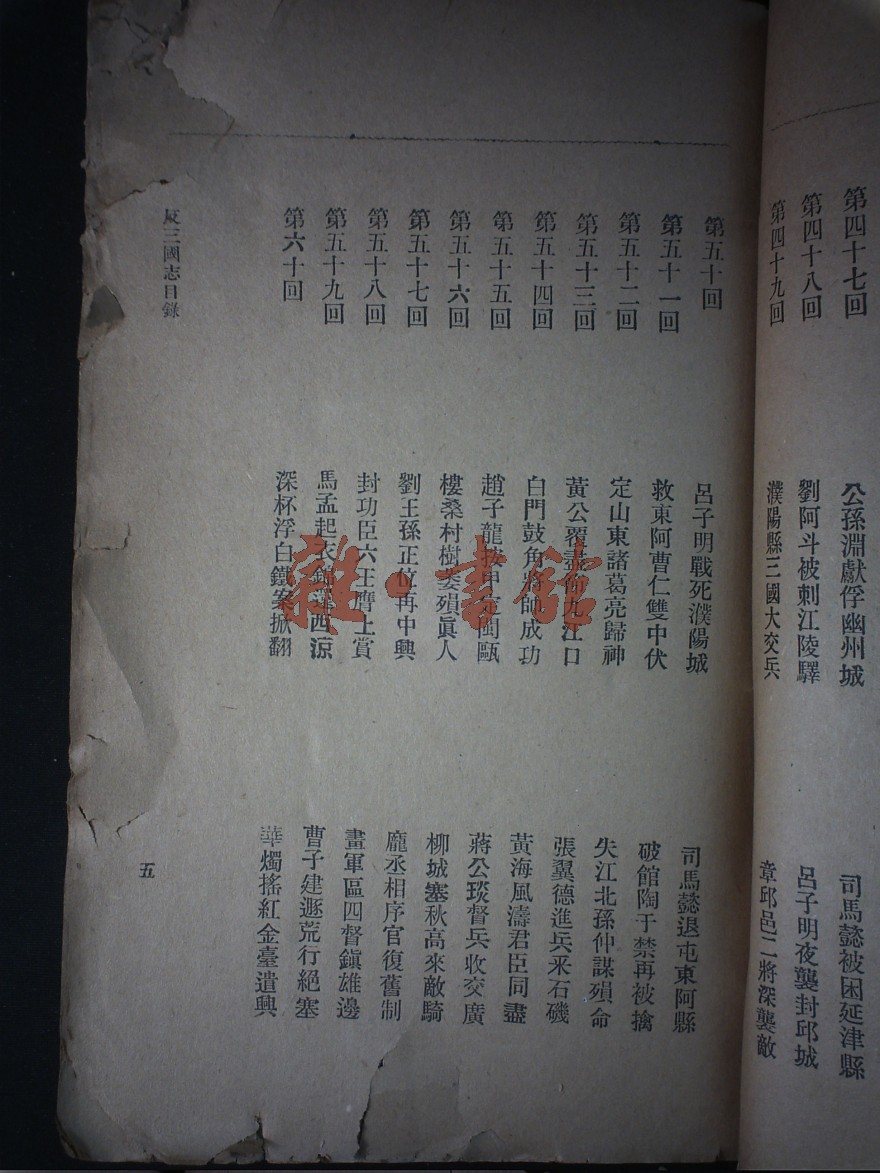 第四十七回 公孫淵獻俘幽州城 司馬懿被困延津縣
第四十八回 劉阿斗被刺江陵驛 呂子明夜襲封邱城
第四十九回 濮陽縣三國大交兵 章邱邑二將深襲敵
第五十回 呂子明戰死濮陽城 司馬懿退屯東阿縣
第五十一回 救東阿曹仁雙中伏 破館陶于禁再被擒
第五十二回 定山東諸葛亮歸神 失江北孫仲謀殞命
第五十三回 黃公覆盡節九江口 張翼德進兵采石磯
第五十四回 白門鼓角將帥成功 黃海風濤君臣同盡
第五十五回 趙子龍按甲定閩甌 蔣公琰督兵收交廣
第五十六回 樓桑村樹萎殞眞人 柳城塞秋高來敵騎
第五十七回 劉王孫正位再中興 龐丞相序官復舊制
第五十八回 封功臣六王膺上賞 畫軍區四督鎭雄邊
第五十九回 馬孟起衣錦還西涼 曹子建遯荒行絕塞
第六十回 深杯浮白鐵案掀翻 華燭搖紅金臺遣興
反三國志目錄
五
雜·書館